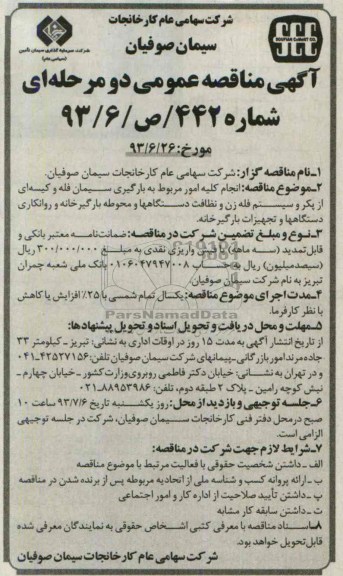 شرکت سهامی عام کارخانجات
سیمان صوفیان
SCC
SOUFIAN CEMENT CO.
شرکت سرمایه گذاری سیمان تأمین
(سهامی عام)
آگهی مناقصه عمومی دو مرحله‌ای
شماره ۴۴۲/ص/۹۳/۶
مورخ: ۹۳/۶/۲۶
۱-نام مناقصه گزار: شرکت سهامی عام کارخانجات سیمان صوفیان.
۲-موضوع مناقصه: انجام کلیه امور مربوط به بارگیری سیمان فله و کیسه‌ای
از پکر و سیستم فله زن و نظافت دستگاهها و محوطه بارگیرخانه و روانکاری
دستگاهها و تجهیزات بارگیرخانه.
۳-نوع و مبلغ تضمین شرکت در مناقصه: ضمانت‌نامه معتبر بانکی و
قابل تمدید (سه ماهه) واریزی نقدی به مبلغ ۳۰۰/۰۰۰/۰۰۰ ریال
(سیصد میلیون) ریال به حساب ۰۱۰۶۰۴۷۹۴۷۰۰۸ بانک ملی شعبه چمران
تبریز به نام شرکت سیمان صوفیان.
۴-مدت اجرای موضوع مناقصه: یکسال تمام شمسی با ۲۵٪ افزایش یا کاهش
با نظر کارفرما.
۵-مهلت و محل دریافت و تحویل اسناد و تحویل پیشنهادها:
از تاریخ انتشار آگهی به مدت ۱۵ روز در اوقات اداری به نشانی: تبریز - کیلومتر ۳۳
جاده مرند امور بازرگانی-پیمانهای شرکت سیمان صوفیان تلفن: ۴۲۵۲۷۱۵۶-۰۴۱
و در تهران به نشانی: خیابان دکتر فاطمی روبروی وزارت کشور - خیابان چهارم -
نبش کوچه رامین - پلاک ۲ طبقه دوم، تلفن: ۸۸۹۵۳۹۸۶-۰۲۱
۶-جلسه توجیهی و بازدید از محل: روز یکشنبه تاریخ ۹۳/۷/۶ ساعت ۱۰
صبح در محل دفتر فنی کارخانجات سیمان صوفیان، شرکت در جلسه توجیهی
الزامی است.
۷-شرایط لازم جهت شرکت در مناقصه:
الف - داشتن شخصیت حقوقی با فعالیت مرتبط با موضوع مناقصه
ب - ارائه پروانه کسب و شناسه ملی از اتحادیه مربوطه پس از برنده شدن در مناقصه
پ - داشتن تأیید صلاحیت از اداره کار و امور اجتماعی
ت - داشتن سابقه کار مشابه
۸-اسناد مناقصه با معرفی کتبی اشخاص حقوقی به نمایندگان معرفی شده
قابل تحویل خواهد بود.
شرکت سهامی عام کارخانجات سیمان صوفیان
ParsNamadData